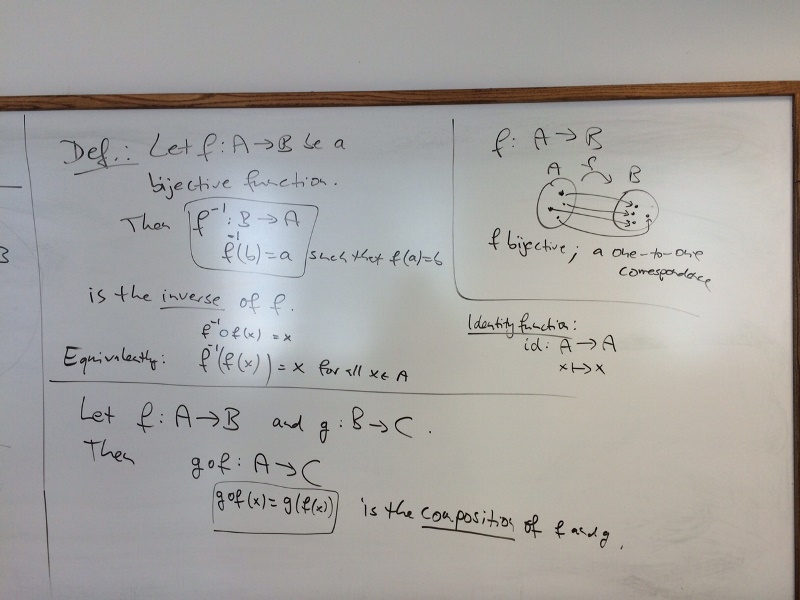 Def.: Let f: A→B be a
bijective function.
Then f⁻¹: B→A
f⁻¹(b) = a such that f(a)=b
is the inverse of f.
f⁻¹∘f(x) = x
Equivalently: f⁻¹(f(x)) = x for all x∈A
f: A→B
A f B
f bijective; a one-to-one
correspondence
Identity function:
id: A→A
x↦x
Let f: A→B and g: B→C.
Then
g∘f: A→C
g∘f(x) = g(f(x)) is the composition of f and g.
3